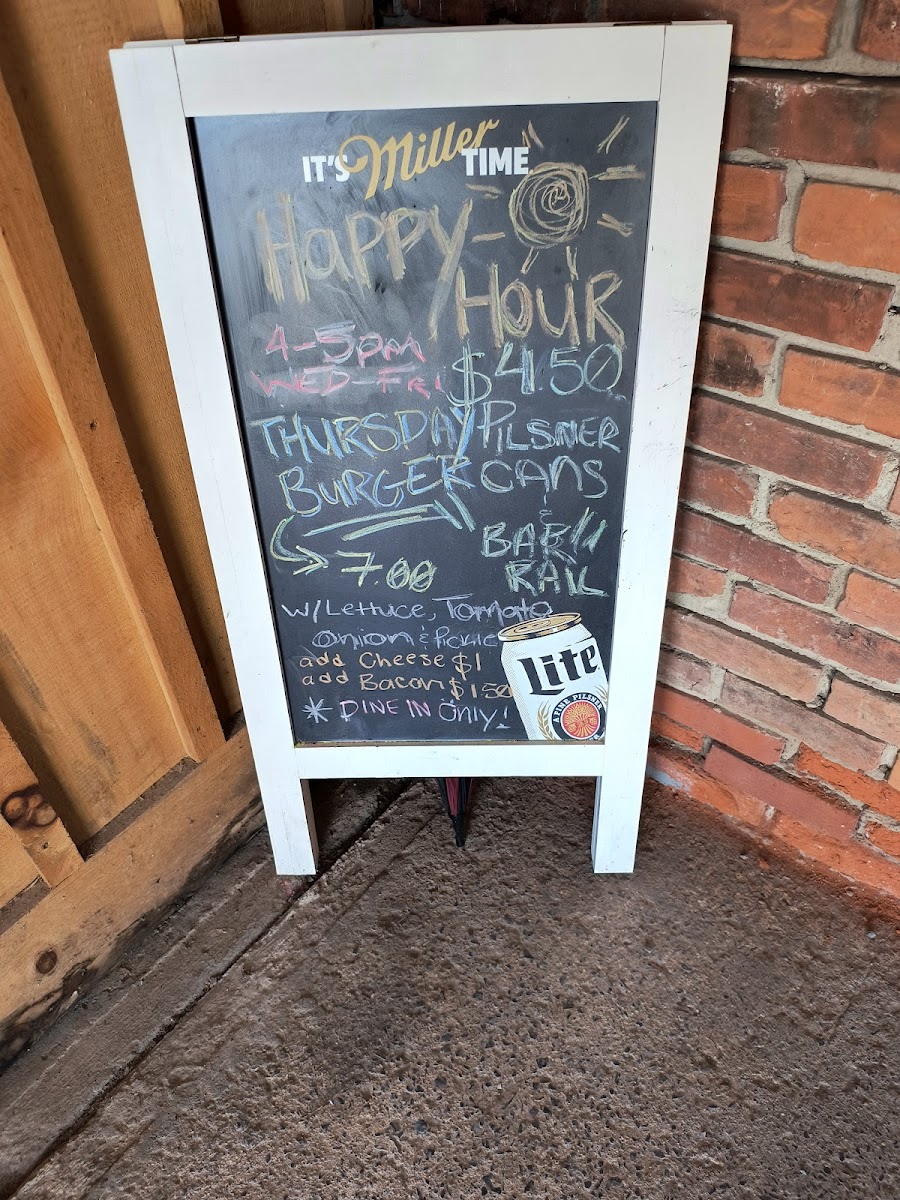 IT'S Miller TIME
HAPPY
HOUR
4-5pm
WED-FRI
$4.50
PILSNER
CANS
&
BAR
RAIL
THURSDAY
BURGER
7.00
w/Lettuce, Tomato
Onion & Pickle
add Cheese $1
add Bacon $1.50
* DINE IN ONLY!
Lite
A FINE PILSNER